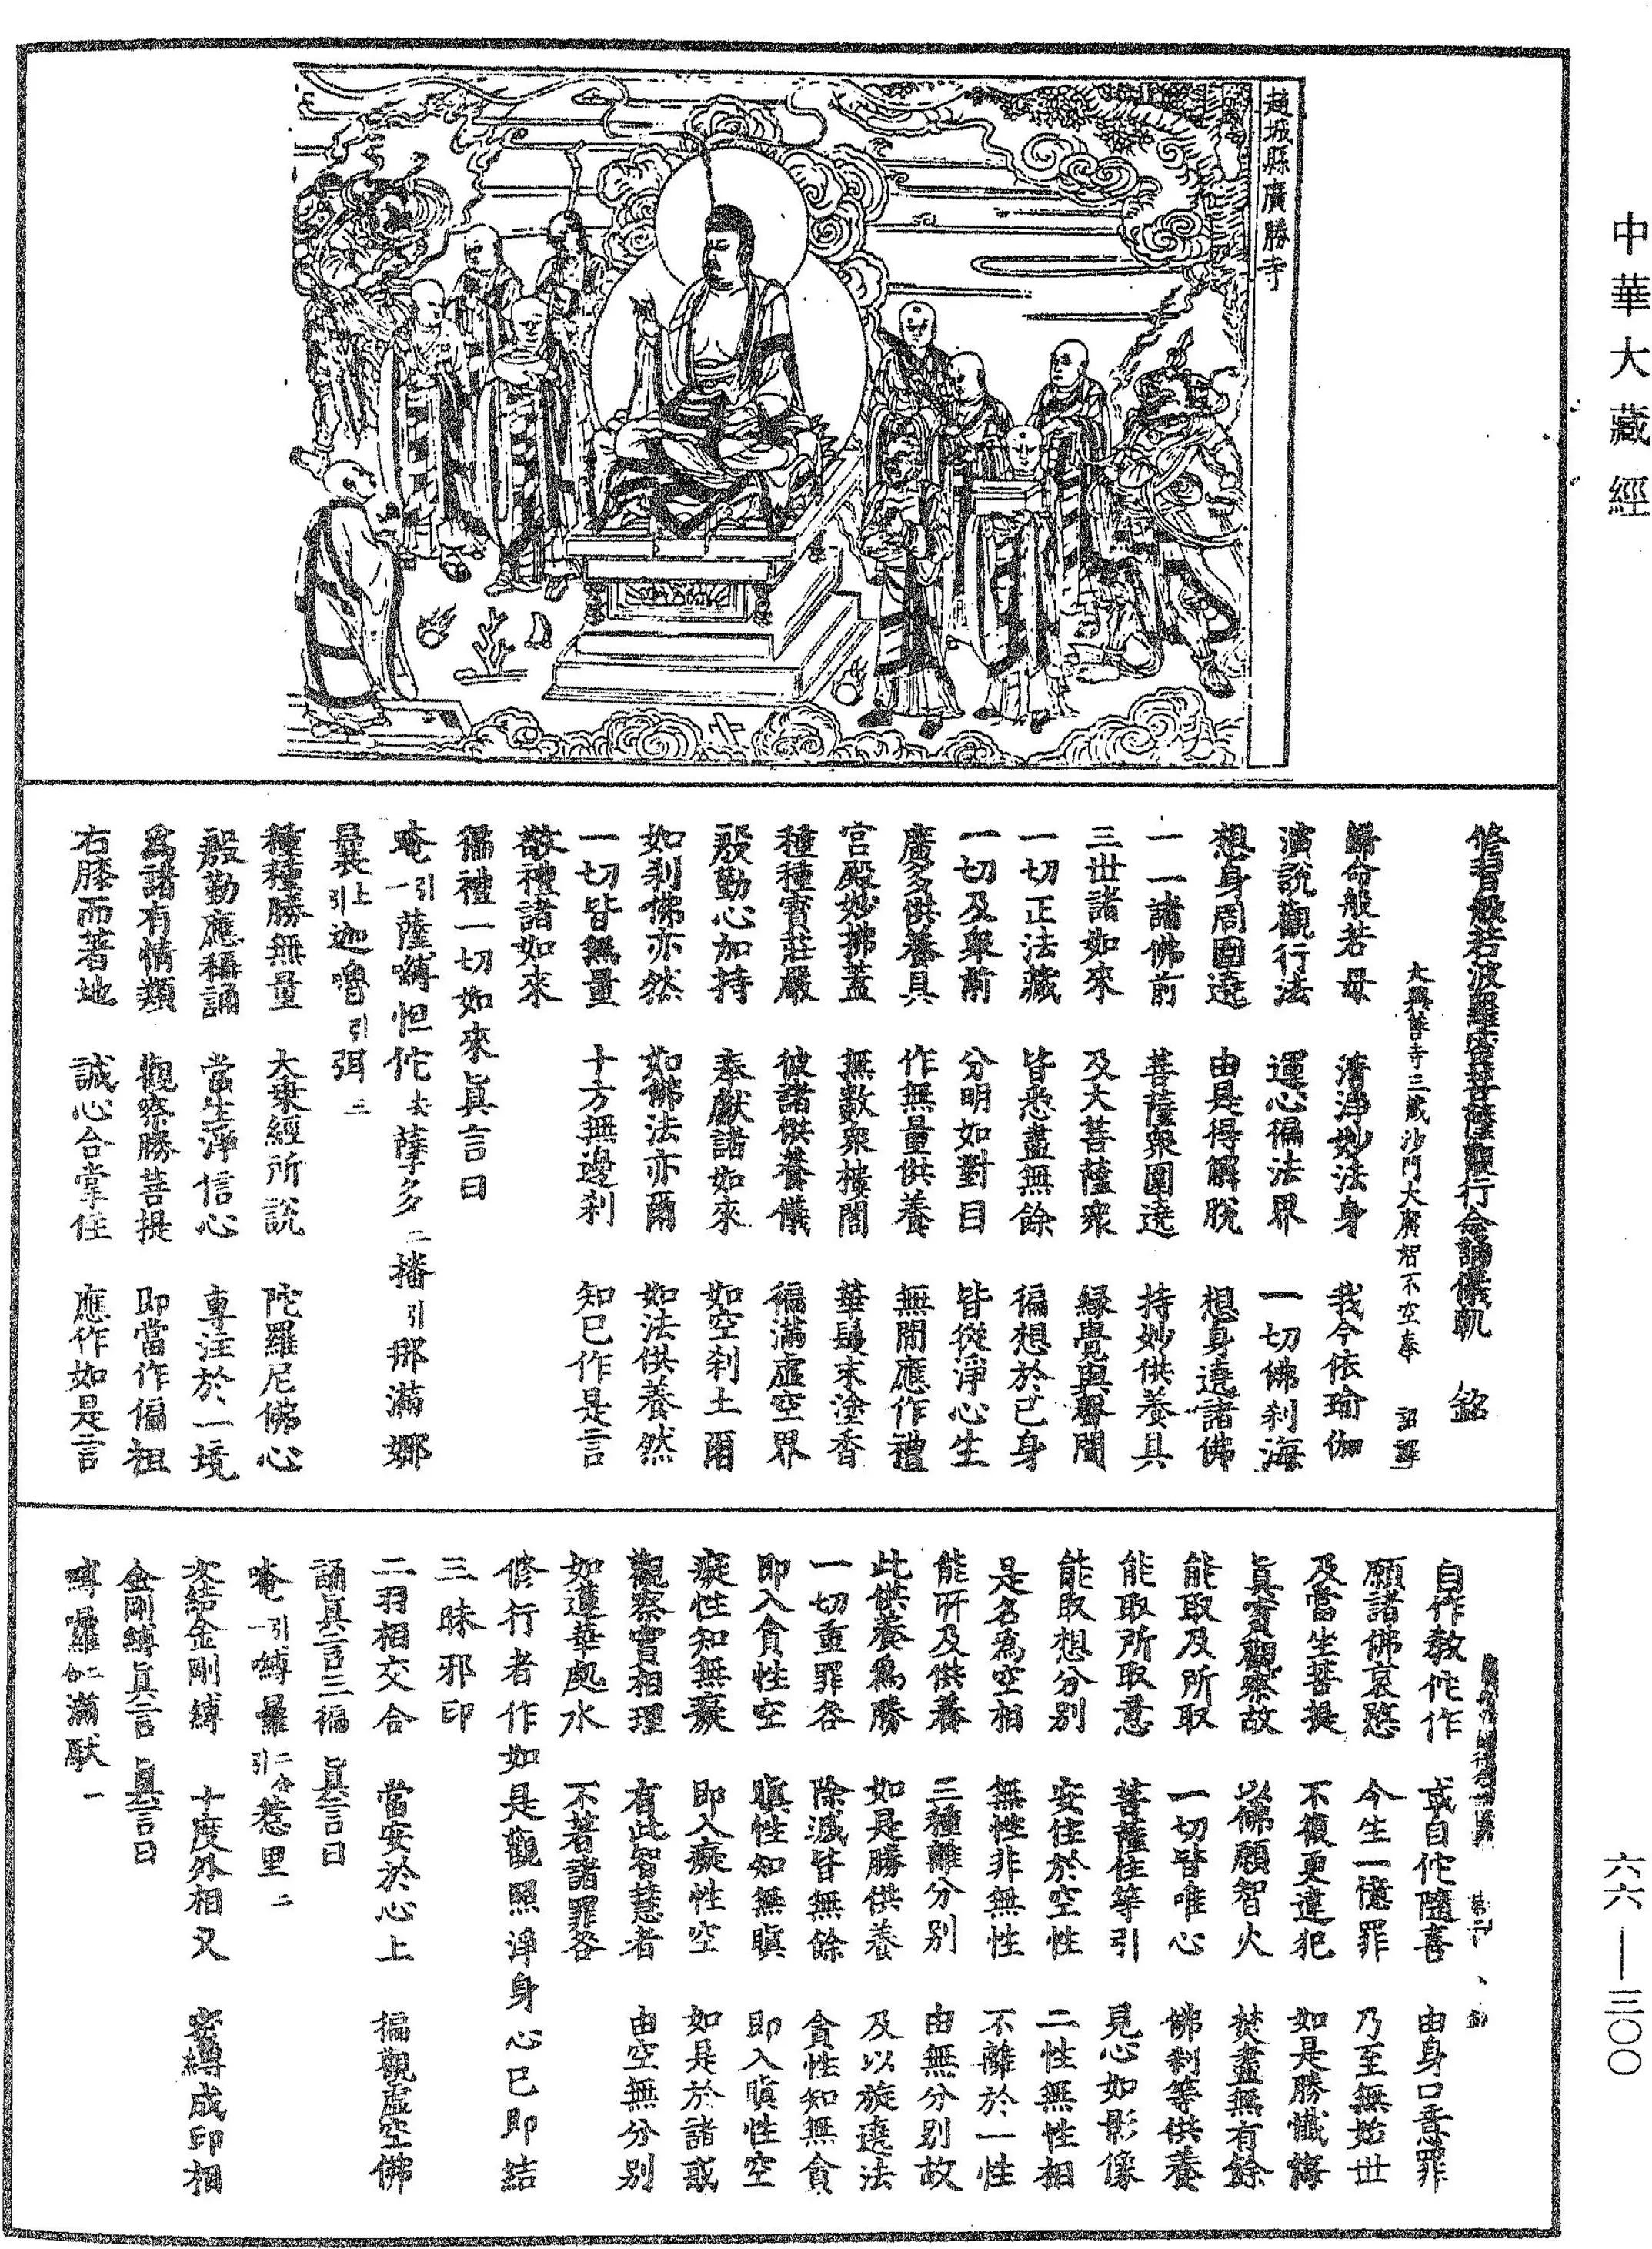 中華大藏經
趙城縣廣勝寺
脩習般若波羅蜜菩薩觀行念誦儀軌 銘
大興善寺三藏沙門大廣智不空奉 詔譯
歸命般若母 清淨妙法身 我今依瑜伽
演說觀行法 運心徧法界 一切佛刹海
想身周圍遶 由是得解脫 想身遶諸佛
一一諸佛前 菩薩衆圍遶 持妙供養具
三世諸如來 及大菩薩衆 緣覺與聲聞
一切正法藏 皆悉盡無餘 徧想於己身
一切及畢前 分明如對目 皆從淨心生
廣多供養具 作無量供養 無間應作禮
宮殿妙拂蓋 無數衆樓閣 華鬘末塗香
種種寶莊嚴 彼諸供養儀 徧滿虛空界
殷勤心加持 奉獻諸如來 如空刹土爾
如刹佛亦然 如佛法亦爾 如法供養然
一切皆無量 十方無邊刹 知已作是言
敬禮諸如來
徧禮一切如來眞言曰
唵引一薩嚩怛佗去孽多二播引那滿娜
曩上引迦嚕引弭三
種種勝無量 大乘經所說 陀羅尼佛心
殷勤應稱誦 當生淨信心 專注於一境
爲諸有情類 觀察勝菩提 即當作徧祖
右膝而著地 誠心合掌住 應作如是言
自作教佗作 或自佗隨喜 由身口意罪
願諸佛哀愍 今生一憶罪 乃至無始世
及當坐菩提 不復更違犯 如是勝懺悔
眞實觀察故 以佛願智火 焚盡無有餘
能取及所取 一切皆唯心 佛刹等供養
能取所取意 菩薩住等引 見心如影像
能取想分別 安住於空性 二性無性相
是名爲空相 無性非無性 不離於一性
能所及供養 三種離分別 由無分別故
此供養爲勝 如是勝供養 及以旋遶法
一切重罪咎 除滅皆無餘 貪性知無貪
即入貪性空 瞋性知無瞋 即入瞋性空
癡性知無癡 即入癡性空 如是於諸惑
觀察實相理 有此智慧者 由空無分別
如蓮華處水 不著諸罪咎
修行者作如是觀照淨身心已即結
三昧邪印
二羽相交合 當安於心上 徧觀虛空佛
誦眞言三徧 眞言曰
唵引一嚩曩引二合惹里二
次結金剛縛 十度外相叉 密縛成印相
金剛縛眞言 眞言曰
嚩囉二合滿馱一
六六—三〇〇